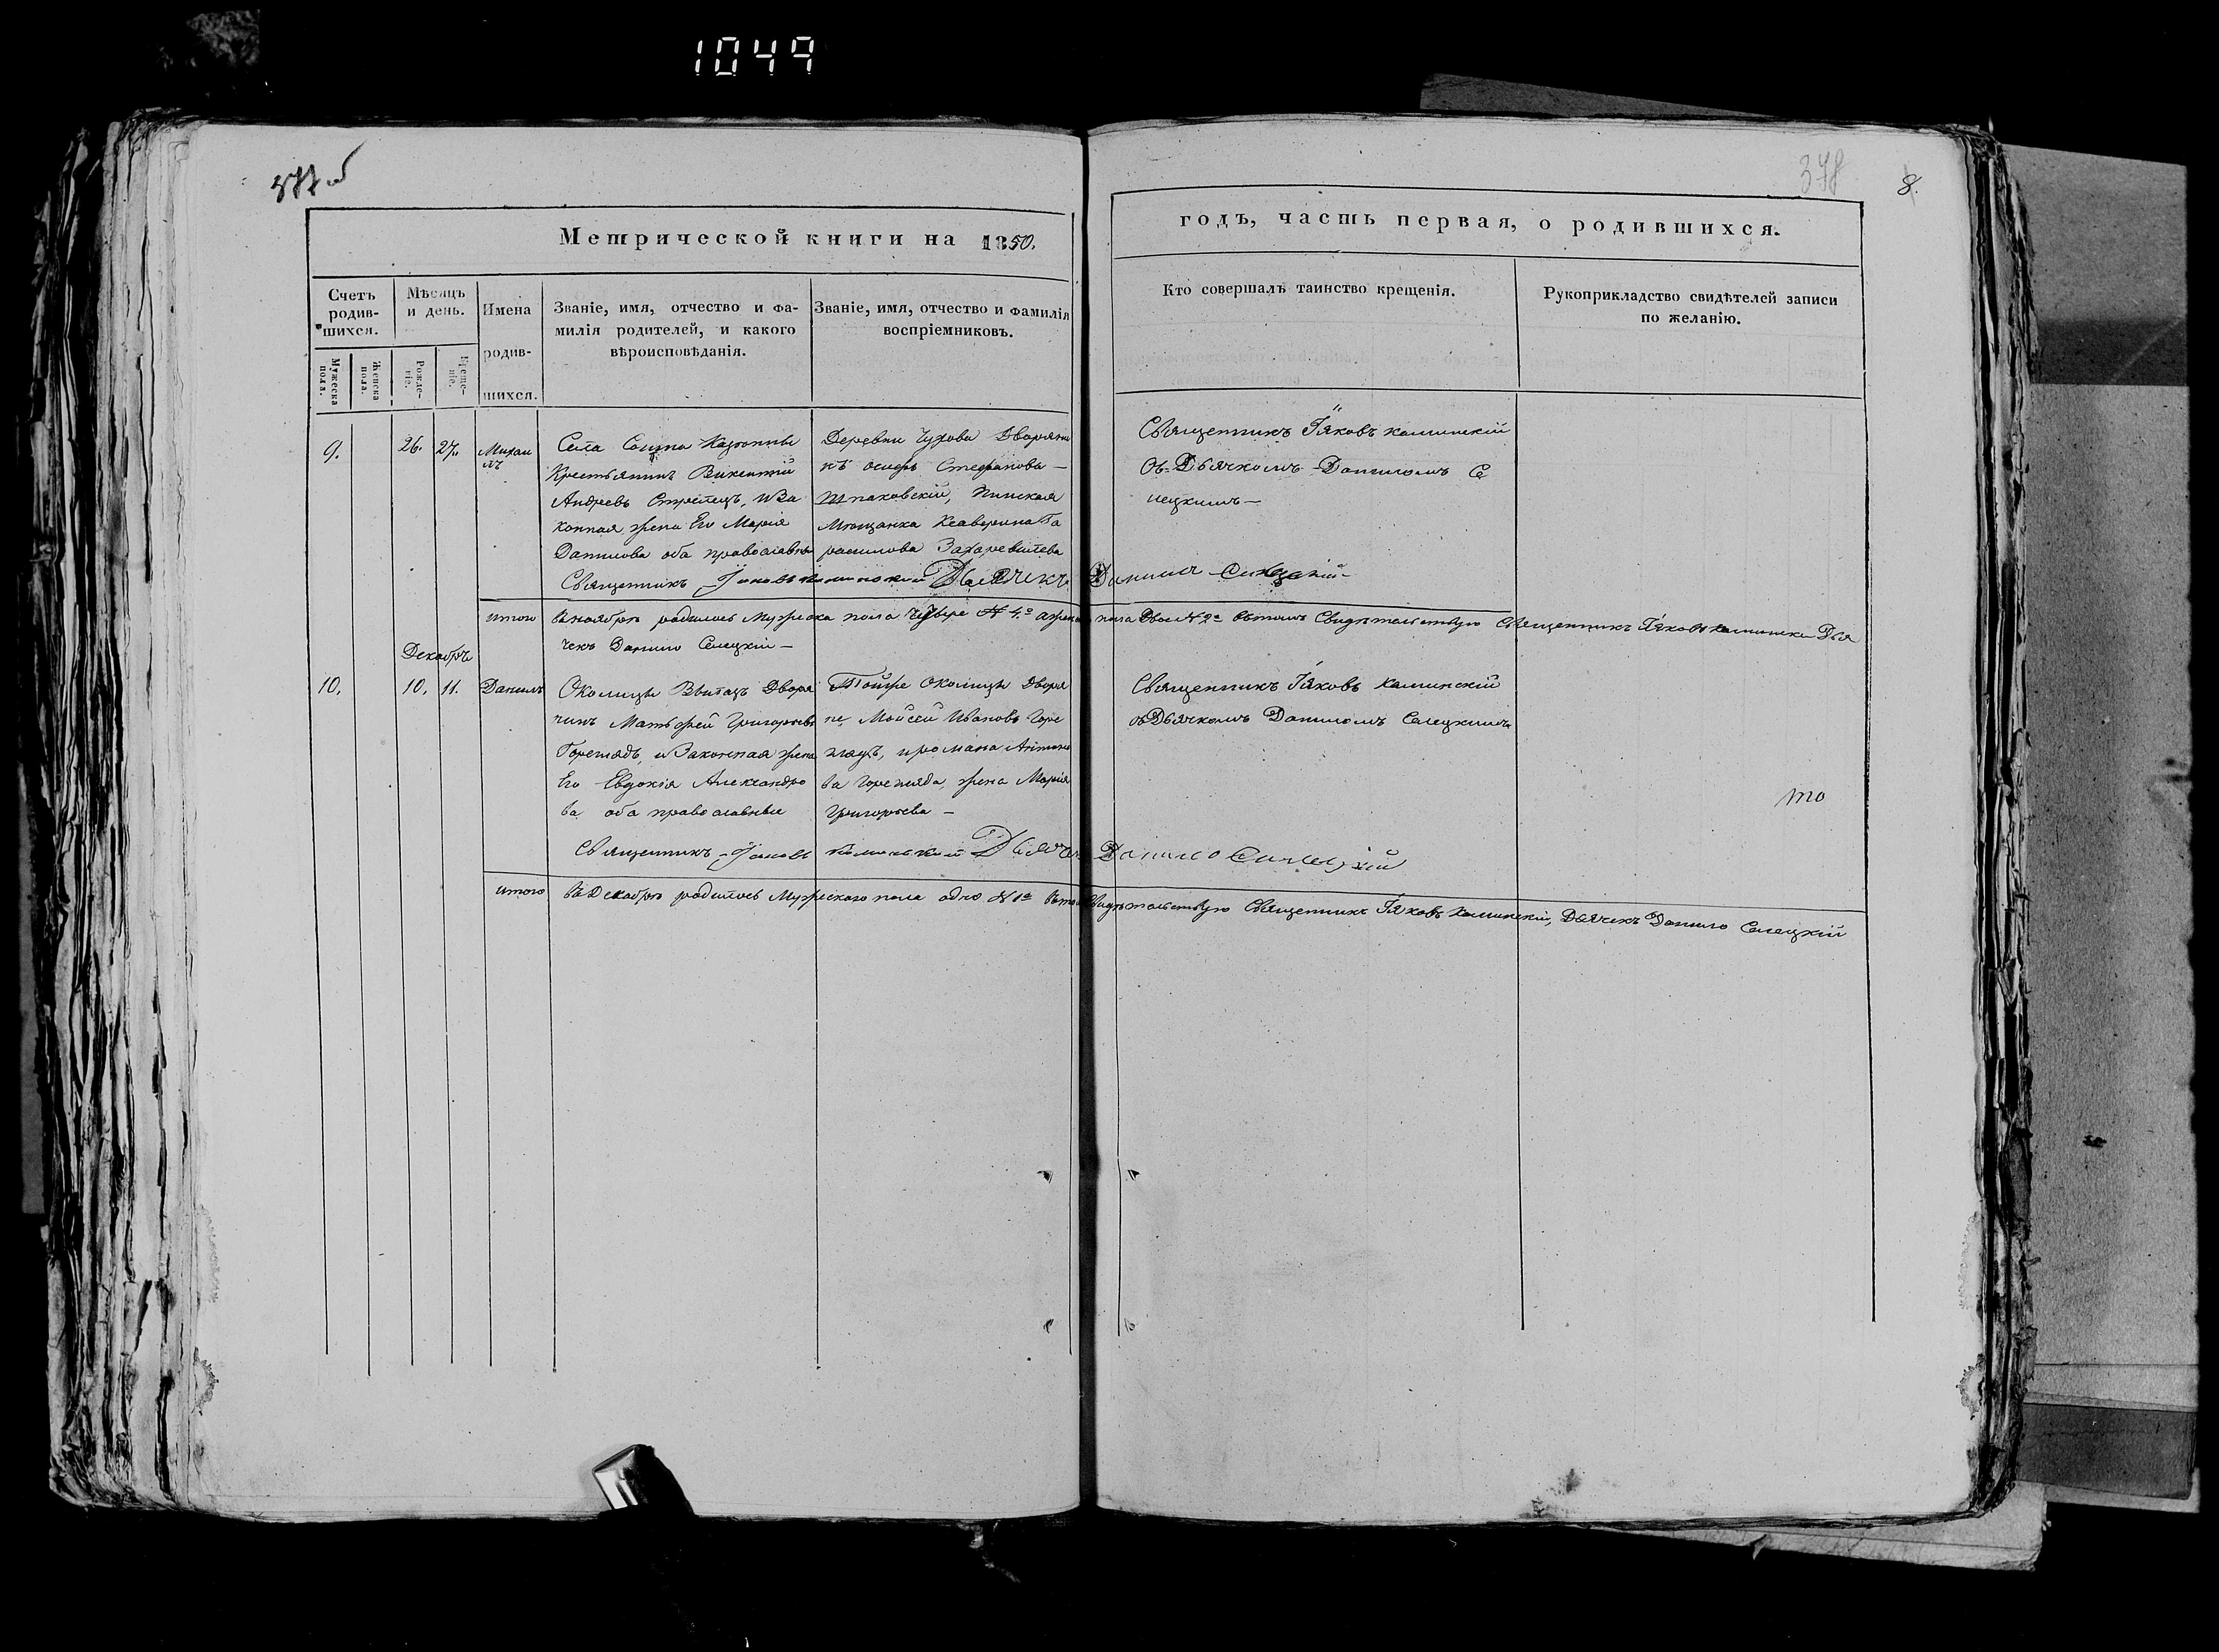 1049
377 об
378
8.
Метрической книги на 1850.
годъ, часть первая, о родившихся.
Счетъ родив-шихся.
Мужеска пола.
Женска пола.
Мѣсяцъ и день.
Рожде-ніе.
Креще-ніе.
Имена
родив-
шихся.
Званіе, имя, отчество и фа-
милія родителей, и какого
вѣроисповѣданія.
Званіе, имя, отчество и фамилія
воспріемниковъ.
Кто совершалъ таинство крещенія.
Рукоприкладство свидѣтелей записи
по желанію.
9.
26. 27.
Михаи
лъ
Села Казонны
Крестьянинъ Викентій
Андреевъ Стрелецъ, иЗа
конная жена Его Марія
Данилова оба православны
Деревни Чухова Дворяни
нъ Осифъ Стефановъ —
Шпаковскій, Пинская
Мющанка Ксаверина Га
расимова Захаревичева
Священникъ Іяковъ Каминскій
Съ Дьячкомъ Даниломъ Се
лецкимъ —
Священникъ Іяковъ Каминскій Дьячекъ Данило Силецкій
итого Вноября родилось Мужеска пола Четыре № 4º аженска пола Двое № 2º вѣтомъ Свидѣтельствую Священникъ Іяковъ Каминскій Дья
чекъ Данило Селецкій —
Декабрь
10.
10. 11.
Данилъ
Околицы Вылазъ Дворя
нинъ Матьфей Григорьевъ
Горегладъ, и Законная жена
Его Евдокія Александро
ва оба православные
Тойже Околицы Дворя
не Мойсей Ивановъ Горе
гладъ, и романа Антоно
ва Горегляда, жена Марія
Григорьева —
Священникъ Іяковъ Каминскій
съДьячкомъ Даниломъ Селецкимъ
Священникъ Іаковъ Каминскій Дьячекъ Данило Силецкій
итого ВъДекабрѣ родилось Мужескаго пола одно № 1º Втомъ Свидѣтельствую Священникъ Іяковъ Каминскій, Дьячекъ Данило Селецкій